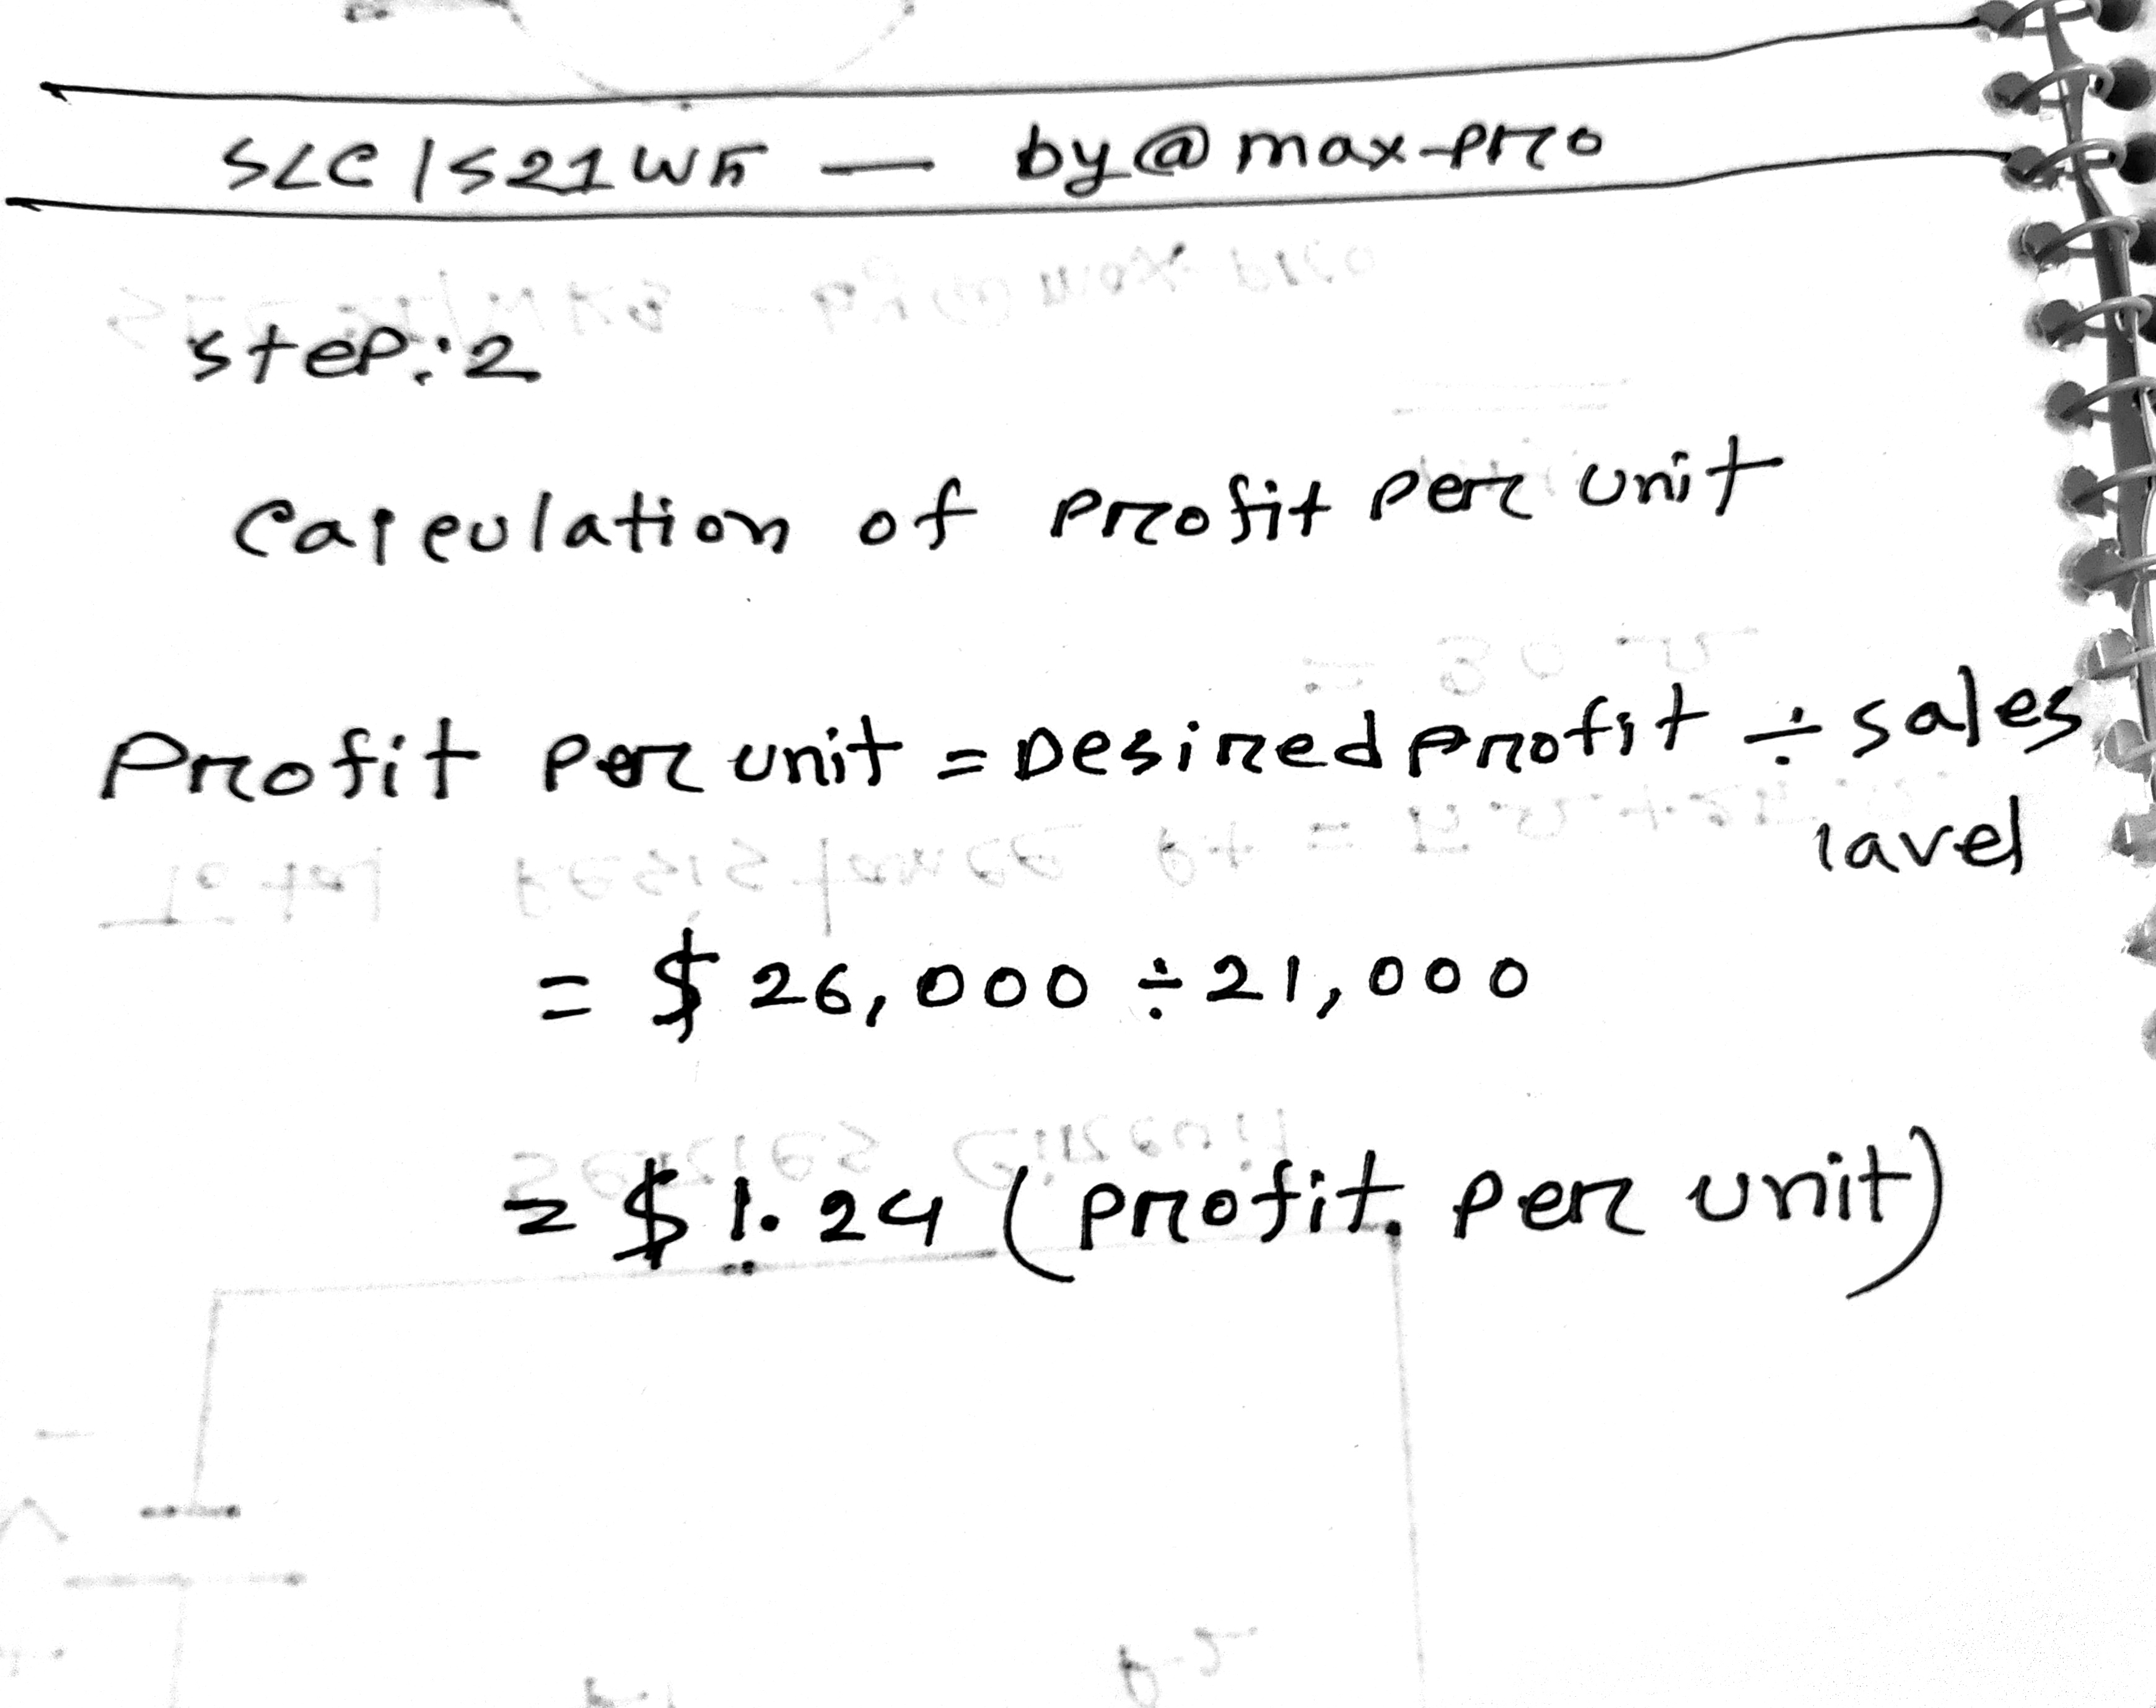 SLC | S21W5 — by @max-pro
Step:2
Calculation of Profit Per Unit
Profit Per unit = Desired profit ÷ sales
lavel
= $ 26,000 ÷ 21,000
= $ 1.24 (profit per unit)